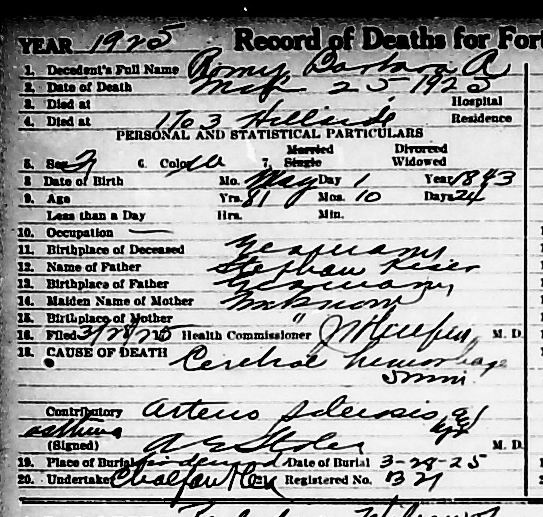 YEAR 1925 Record of Deaths for Fort
1. Decedent's Full Name Romy Barbara A
2. Date of Death Mch 25 1925
3. Died at Hospital
4. Died at 1703 Hillside Residence
PERSONAL AND STATISTICAL PARTICULARS
Married Divorced
5. Sex F 6. Color W 7. Single Widowed
8 Date of Birth Mo. May Day 1 Year 1843
9. Age Yrs. 81 Mos. 10 Days 24
Less than a Day Hrs. Min.
10. Occupation —
11. Birthplace of Deceased Germany
12. Name of Father Stephan Kiser
13. Birthplace of Father Germany
14. Maiden Name of Mother Unknown
15. Birthplace of Mother "
16. Filed 3/28/25 Health Commissioner M. D.
18. CAUSE OF DEATH Cerebral hemorrhage
5 min.
Contributory Arterio sclerosis
asthma
(Signed) M. D.
19. Place of Burial Lindenwood Date of Burial 3-28-25
20. Undertaker Chalfant Registered No. 1321